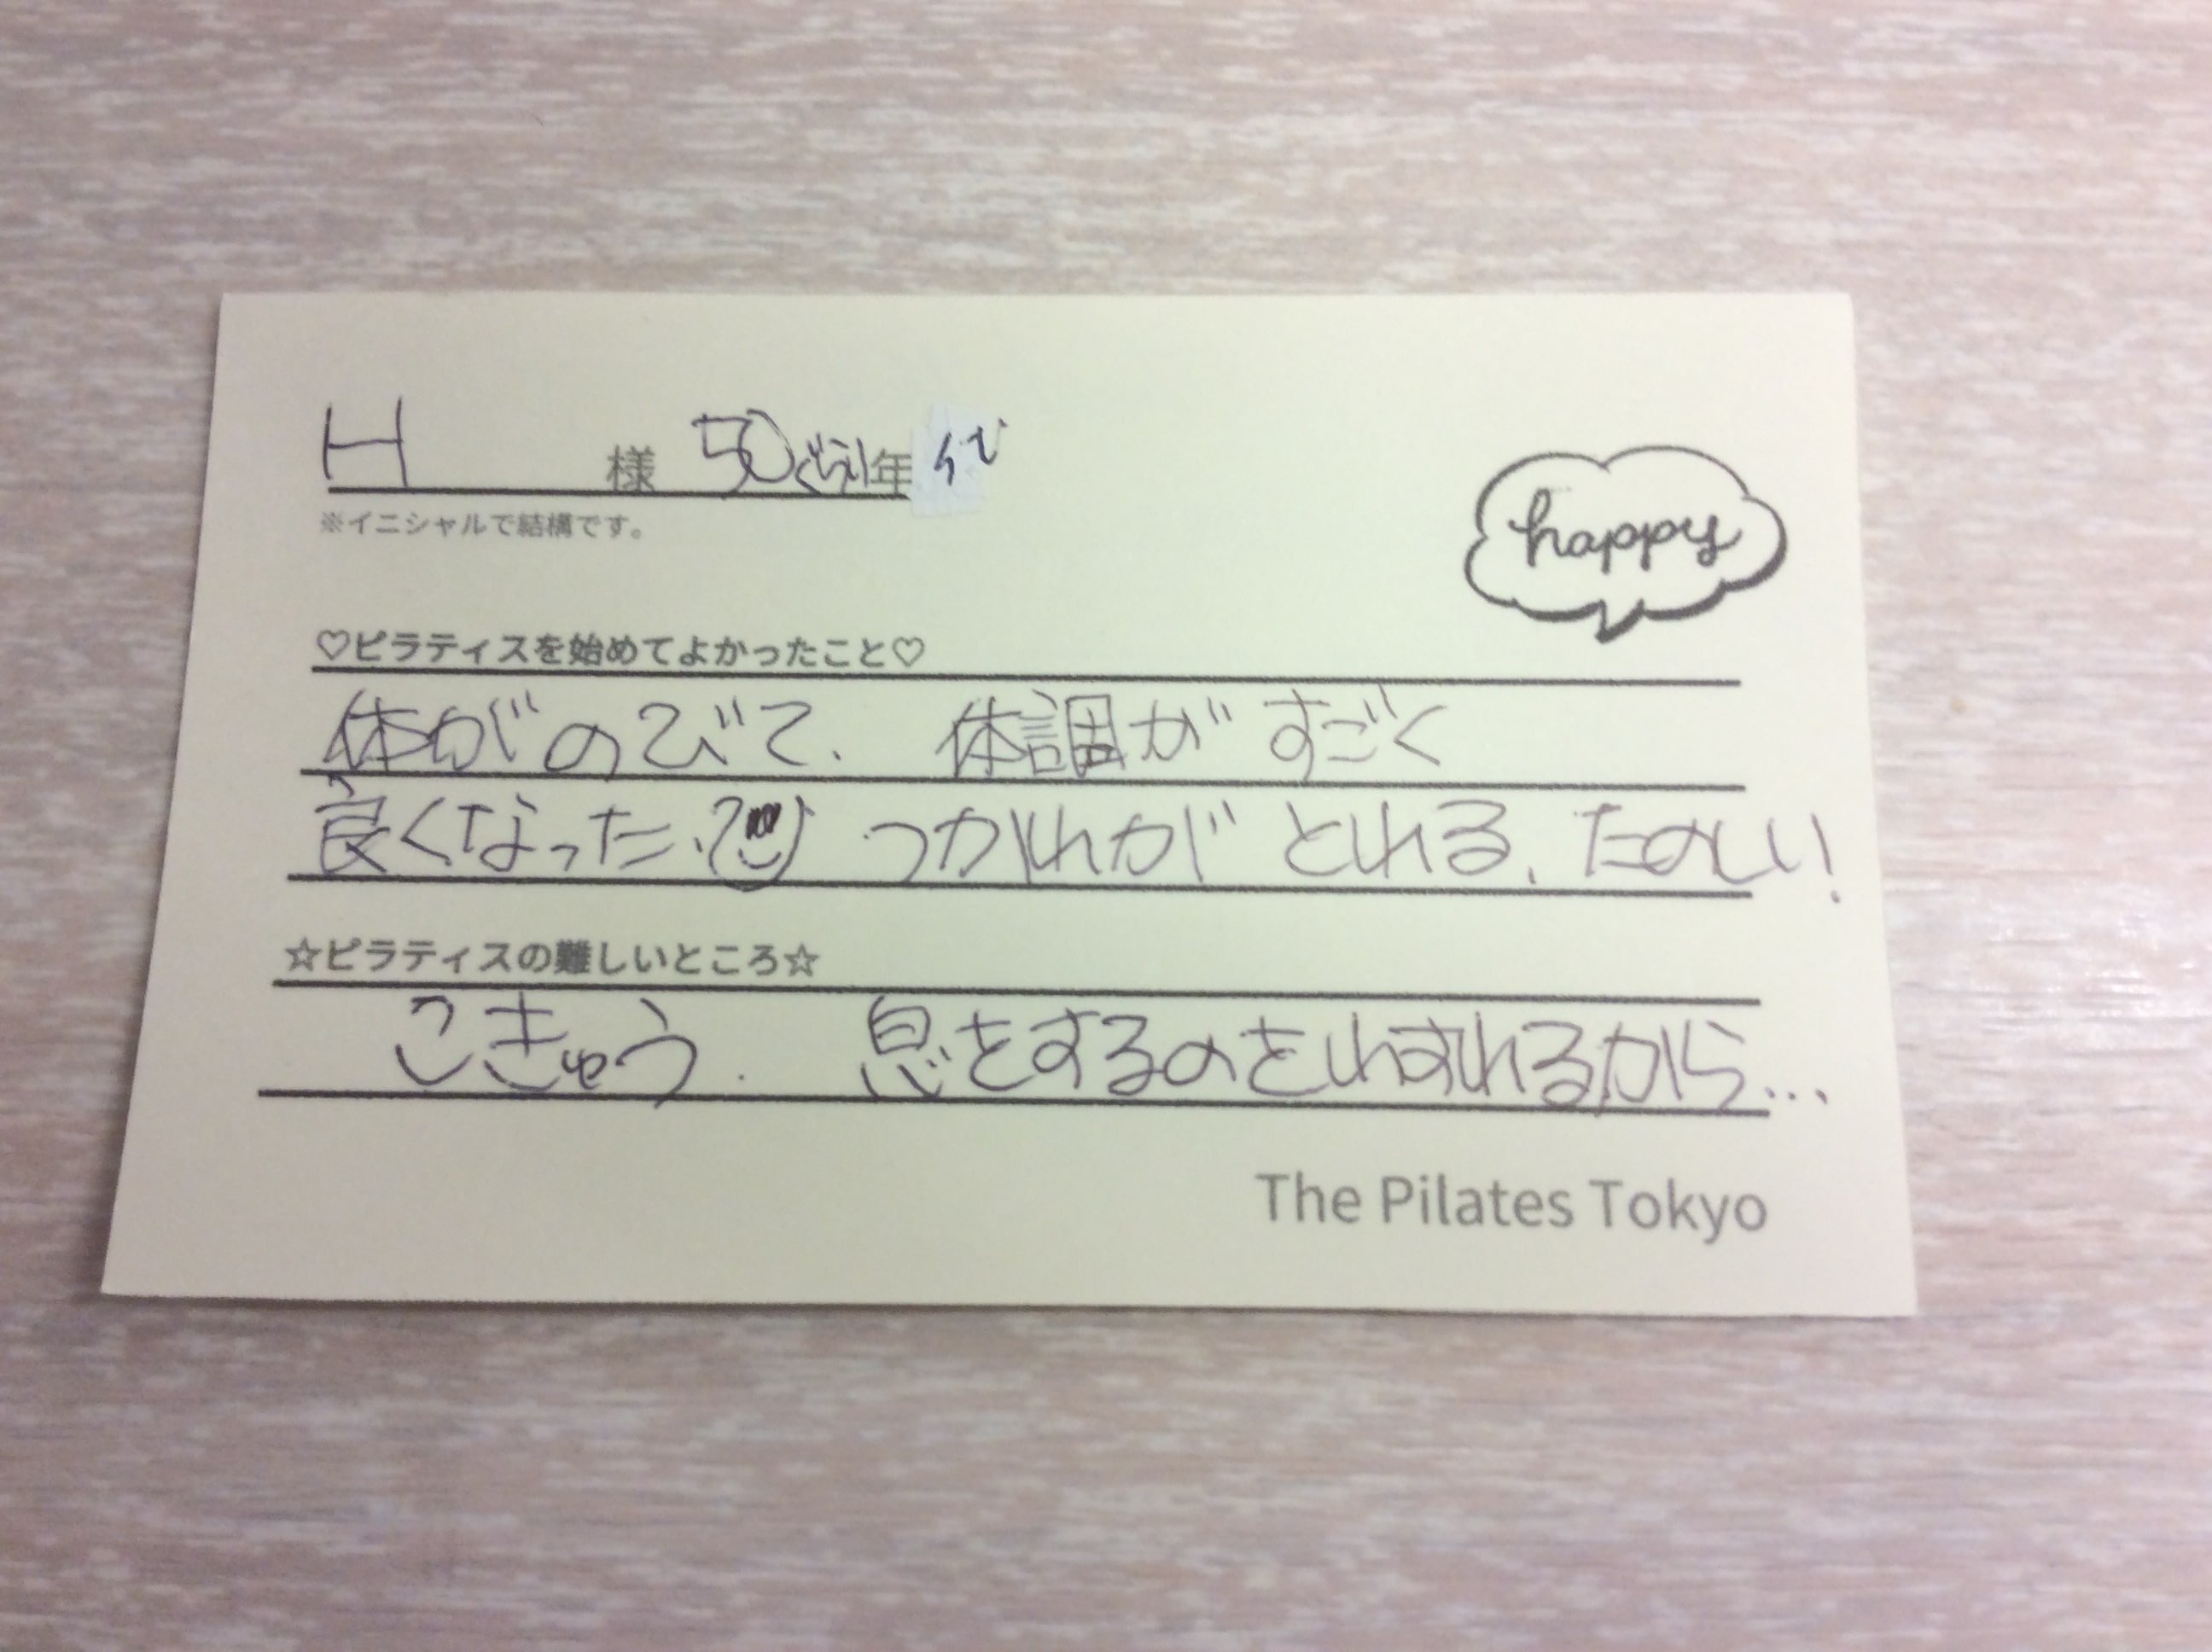 H 様 50ぐらい年代
※イニシャルで結構です。
happy
♡ピラティスを始めてよかったこと♡
体がのびて、体調がすごく
良くなった、つかれがとれる、たのしい!
☆ピラティスの難しいところ☆
こきゅう. 息をするのをわすれるから...
The Pilates Tokyo